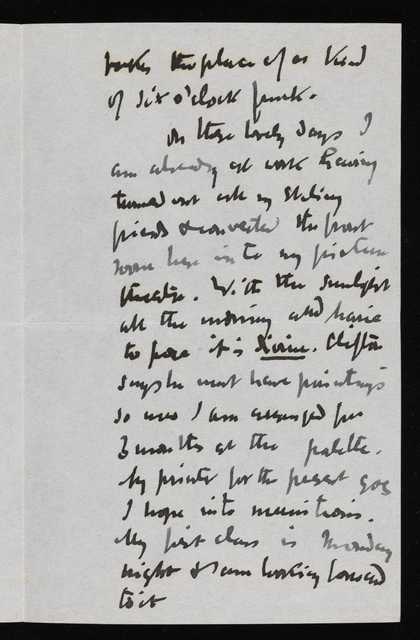 takes the place of a kind
of six o'clock
On these lovely days I
am already at work having
turned out all my
friends & converted the front
room here into my picture
theatre. With the sunlight
all the morning and
to pose it is divine. Clifton
says he must have paintings
so now I am arranged for
3 months at the palette.
My printer for the present goes
I hope into munitions.
My first class is Monday
night & I am looking forward
to it